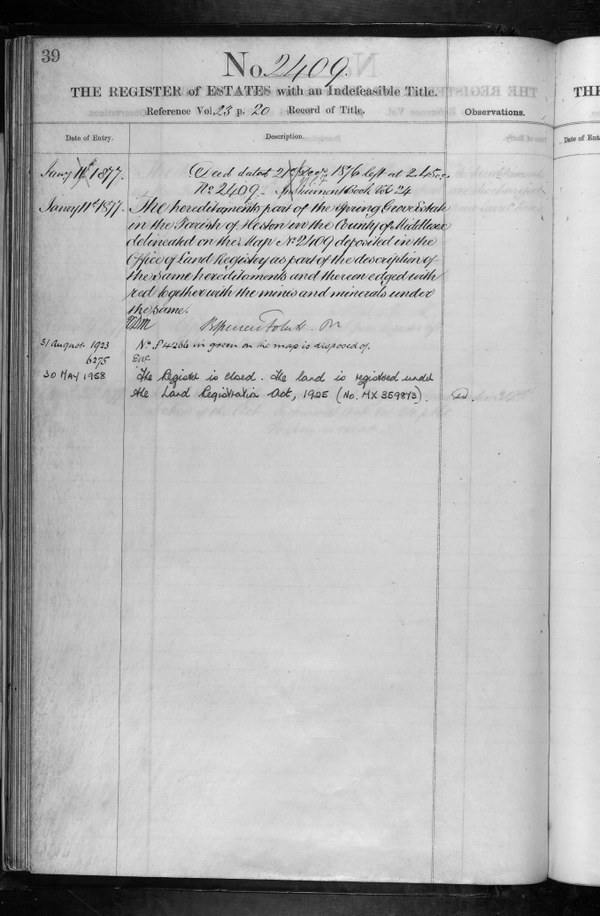 39
No. 2409.
THE REGISTER of ESTATES with an Indefeasible Title.
Reference Vol. 23 p. 20 Record of Title.
Observations.
Date of Entry.
Description.
Jany 11th 1877.
Deed dated 1876 left at 2.45
No. 2409 - Instrument Book Vol 24
Jany 11th 1877.
The hereditaments part of the Spring Grove Estate
in the Parish of Heston in the County of Middlesex
delineated on the Map No 2409 deposited in the
Office of Land Registry as part of the description of
the same hereditaments and thereon edged with
red together with the mines and minerals under
the same.
31 August 1923
No. P4266 in green on the map is disposed of.
6275
30 MAY 1958
The Register is closed. The land is registered under
the Land Registration Act, 1925 (No. MX 359873).
THE
Date of Ent